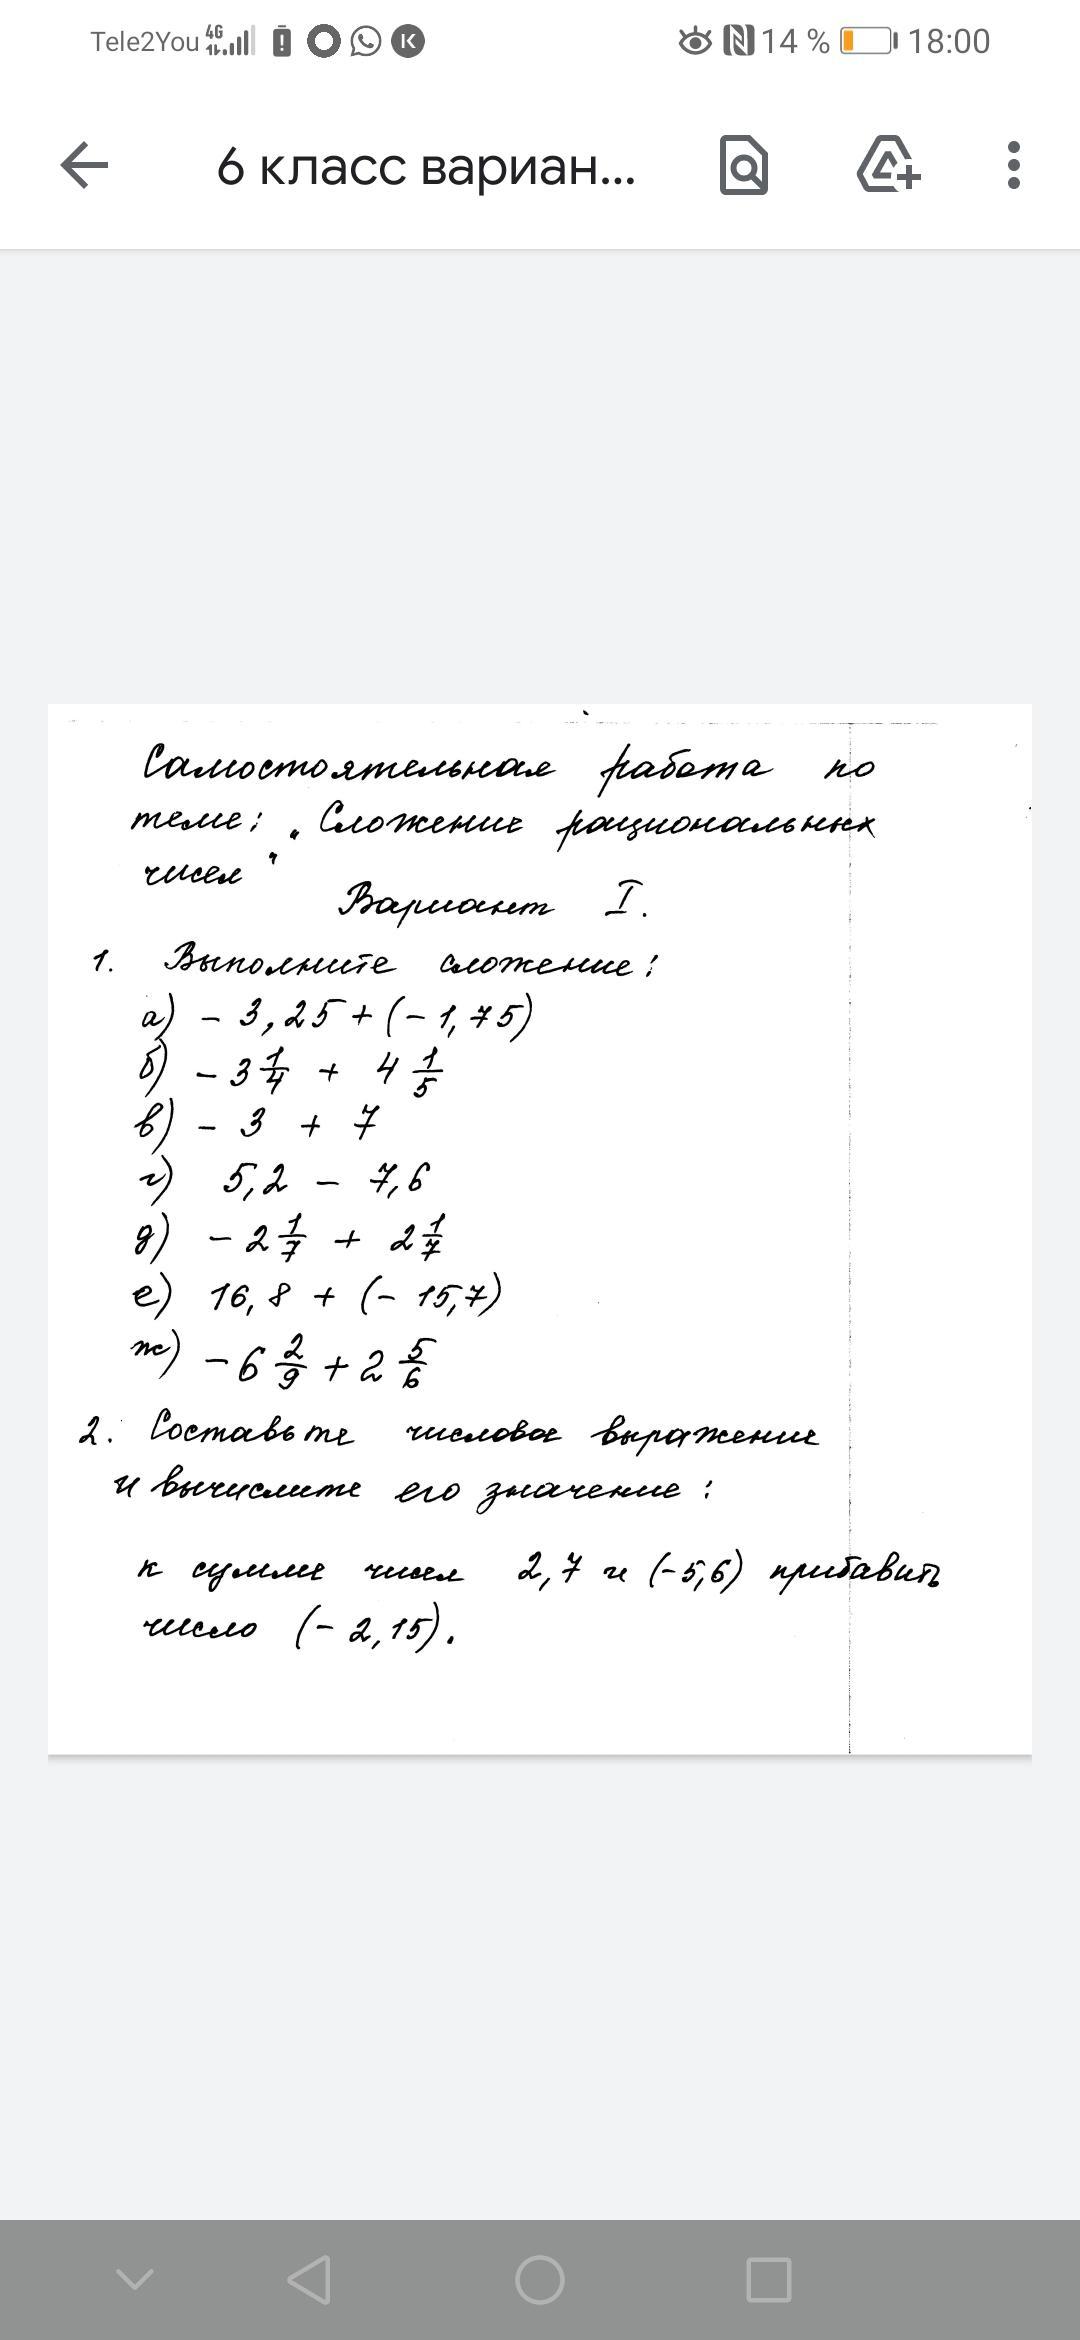 Tele2You 4G K 14 % 18:00
6 класс вариан...
Самостоятельная работа по
теме: „Сложение рациональных
чисел"
Вариант I.
1. Выполните сложение:
а) - 3,25 + (- 1,75)
б) - 3 1/4 + 4 1/5
в) - 3 + 7
г) 5,2 - 7,6
д) - 2 1/7 + 2 1/7
е) 16,8 + (- 15,7)
ж) - 6 2/9 + 2 5/6
2. Составьте числовое выражение
и вычислите его значение:
к сумме чисел 2,7 и (-5,6) прибавить
число (- 2,15).